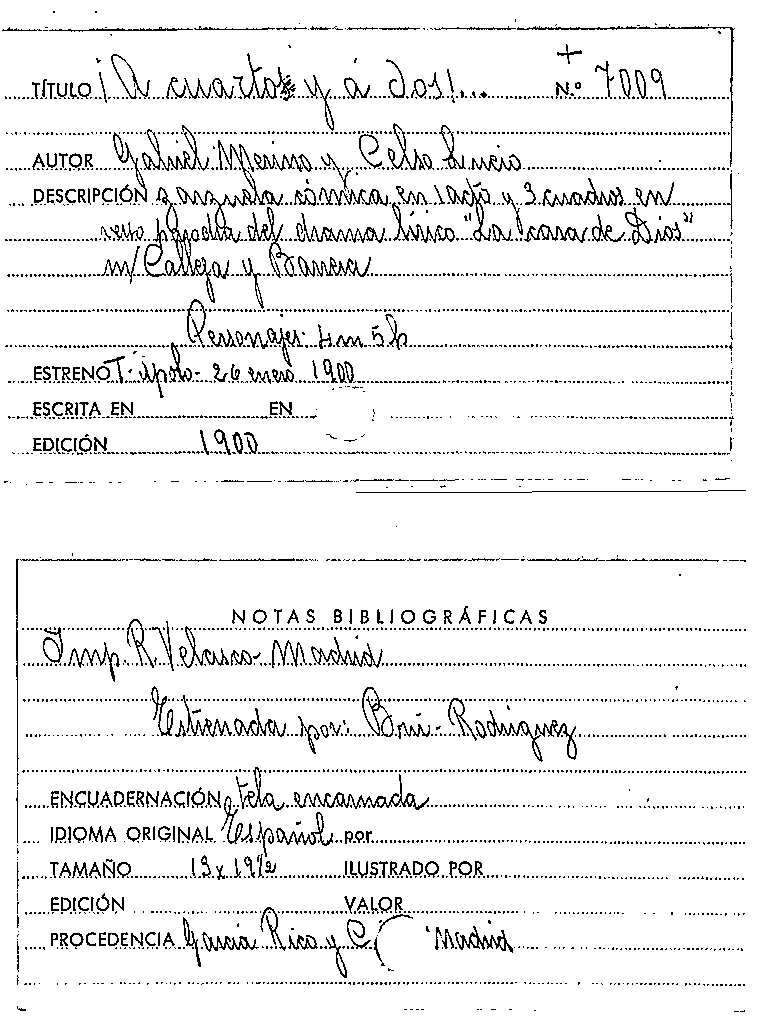 +
TÍTULO ¡A cuartos y á dos!... N.º 7009
AUTOR Gabriel Merino y Celso Lucio
DESCRIPCIÓN zarzuela cómica en 1 acto y 3 cuadros en
verso parodia del drama lírico "La cara de Dios"
m/ Calleja y Barrera
Personajes: 4 m 5 h
ESTRENO T. Apolo - 26 enero 1900
ESCRITA EN EN
EDICIÓN 1900
NOTAS BIBLIOGRÁFICAS
Imp. R. Velasco - Madrid
Estrenada por: Brú - Rodríguez
ENCUADERNACIÓN tela encarnada
IDIOMA ORIGINAL Español por
TAMAÑO 13 x 19 1/2 ILUSTRADO POR
EDICIÓN VALOR
PROCEDENCIA García Rico y C. Madrid